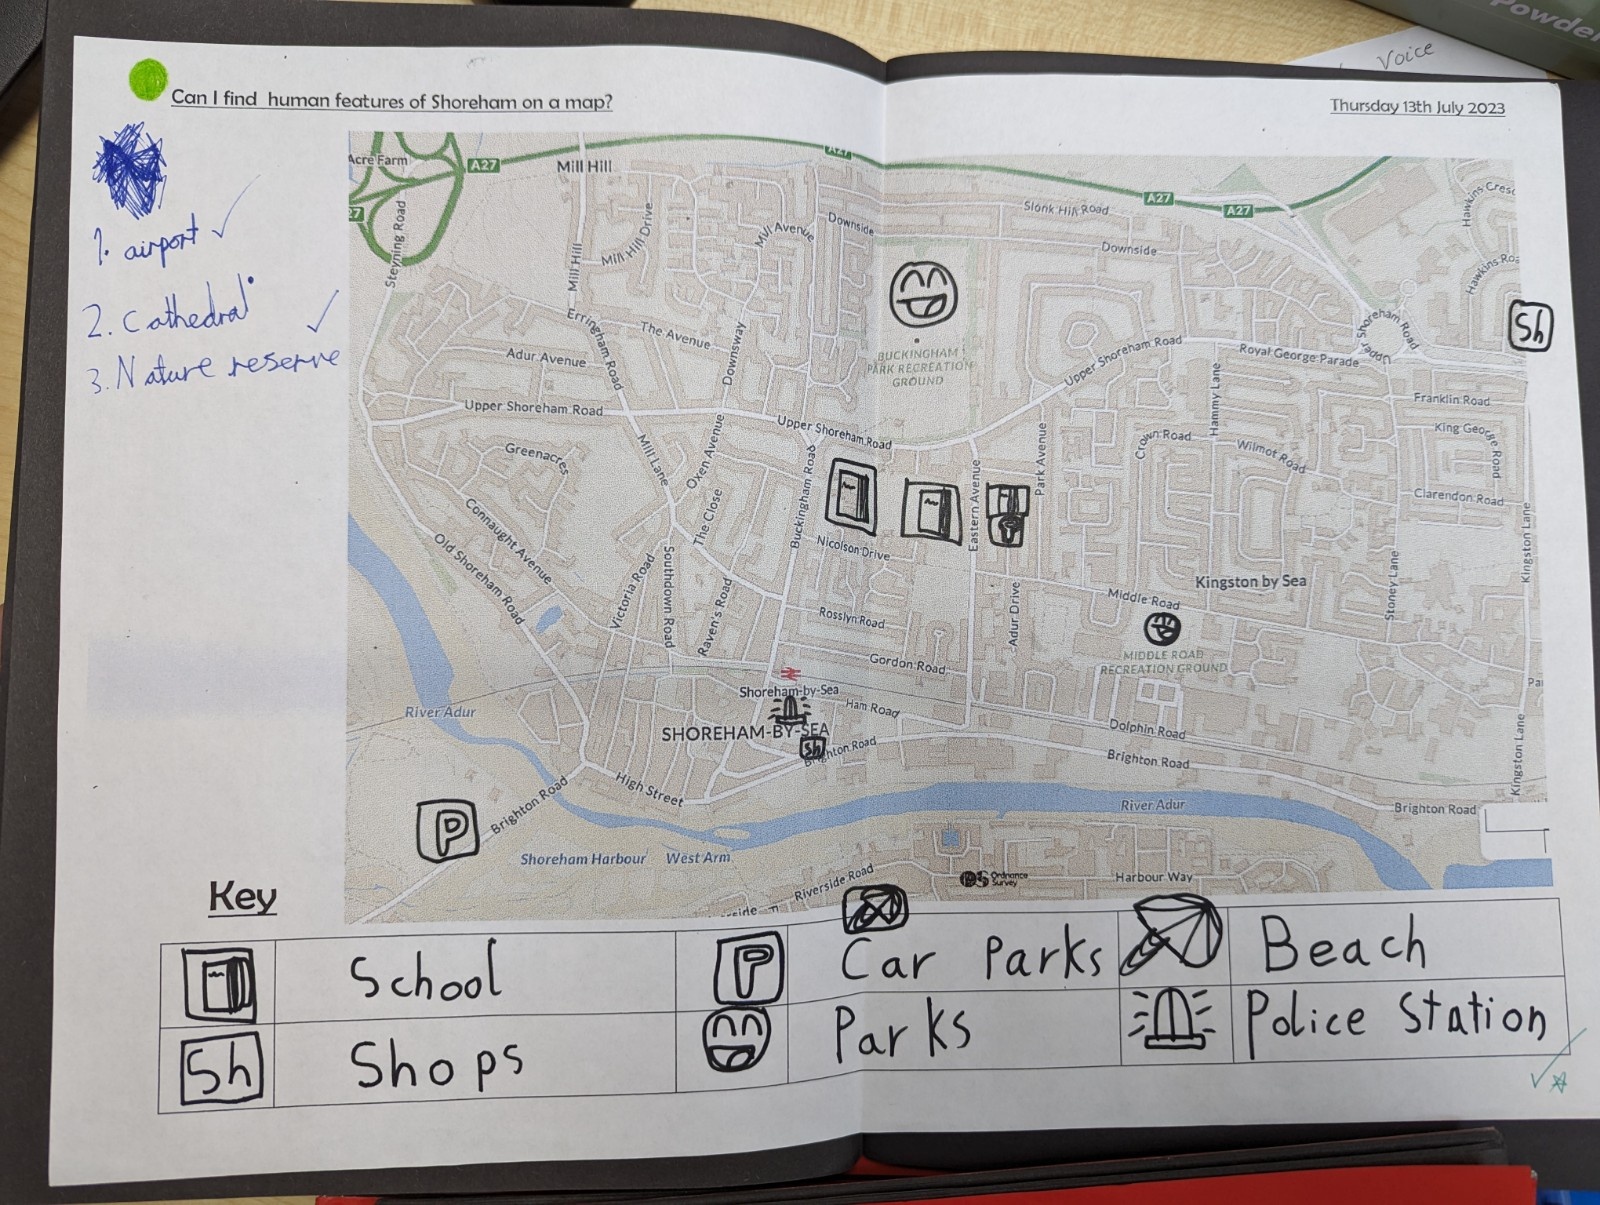 Powder
Voice
Can I find human features of Shoreham on a map?
Thursday 13th July 2023
1. airport ✓
2. Cathedral
3. Nature reserve ✓
Acre Farm
A27
Mill Hill
A27
A27
A27
27
Steyning Road
Mill Hill
Mill Hill Drive
Mill Avenue
Downside
Slonk Hill Road
Downside
Hawkins Cresc
Hawkins Roa
Erringham Road
The Avenue
Downsway
Adur Avenue
BUCKINGHAM
PARK RECREATION
GROUND
Upper Shoreham Road
Royal George Parade
Upper Shoreham Road
Sh
Upper Shoreham Road
Upper Shoreham Road
Hammy Lane
Franklin Road
King George Road
Greenacres
Mill Lane
Oxen Avenue
Buckingham Road
Park Avenue
Crown Road
Wilmot Road
Clarendon Road
The Close
Eastern Avenue
Connaught Avenue
Old Shoreham Road
Nicolson Drive
Victoria Road
Southdown Road
Raven's Road
Rosslyn Road
Adur Drive
Middle Road
Kingston by Sea
Stoney Lane
Kingston Lane
Gordon Road
MIDDLE ROAD
RECREATION GROUND
Pa
Shoreham-by-Sea
Ham Road
River Adur
SHOREHAM-BY-SEA
Sh
Brighton Road
Dolphin Road
Brighton Road
Kingston Lane
High Street
River Adur
Brighton Road
P
Brighton Road
Shoreham Harbour
West Arm
Riverside Road
OS Ordnance
Survey
Harbour Way
Key
School
P
Car Parks
Beach
Sh
Shops
Parks
Police Station
✓